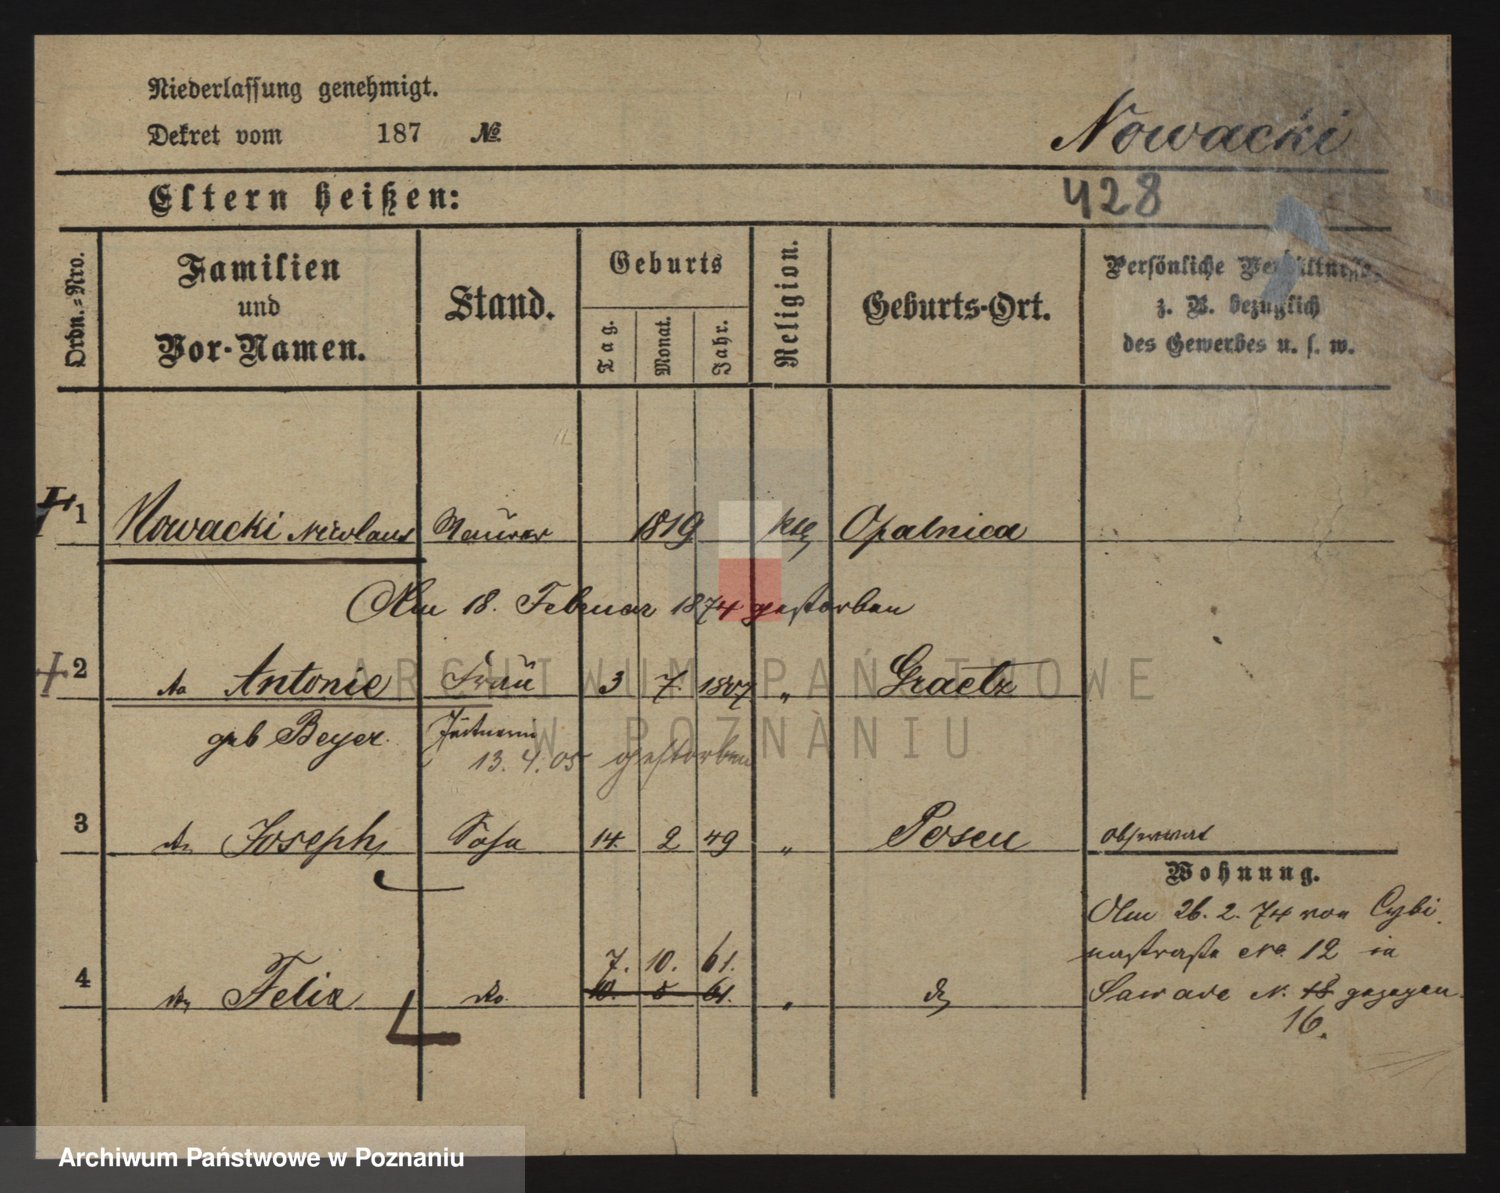 Niederlassung genehmigt.
Dekret vom 187 №
Nowacki
Eltern heißen:
428
Ordn.=Nro.
Familien
und
Vor-Namen.
Stand.
Geburts
Tag.
Monat.
Jahr.
Religion.
Geburts-Ort.
Persönliche Verhältnisse,
z. B. bezüglich
des Gewerbes u. s. w.
1 Nowacki Nicolaus Maurer 1819 kth Opalnica
Am 18. Februar 1874 gestorben
2 do Antonie Frau 3 7. 1807 " Graetz
geb Beyer.
13. 4. 05 gestorben
3 do Joseph Sohn 14. 2 49 " Posen
Wohnung.
4 do Felix do. 7. 10. 61. " do
10. 5 61.
Am 26. 2. 74 von Cybi
nastraße No 12 in
Sawade N. 18 gezogen.
16.
ARCHIWUM PAŃSTWOWE
W POZNANIU
Archiwum Państwowe w Poznaniu